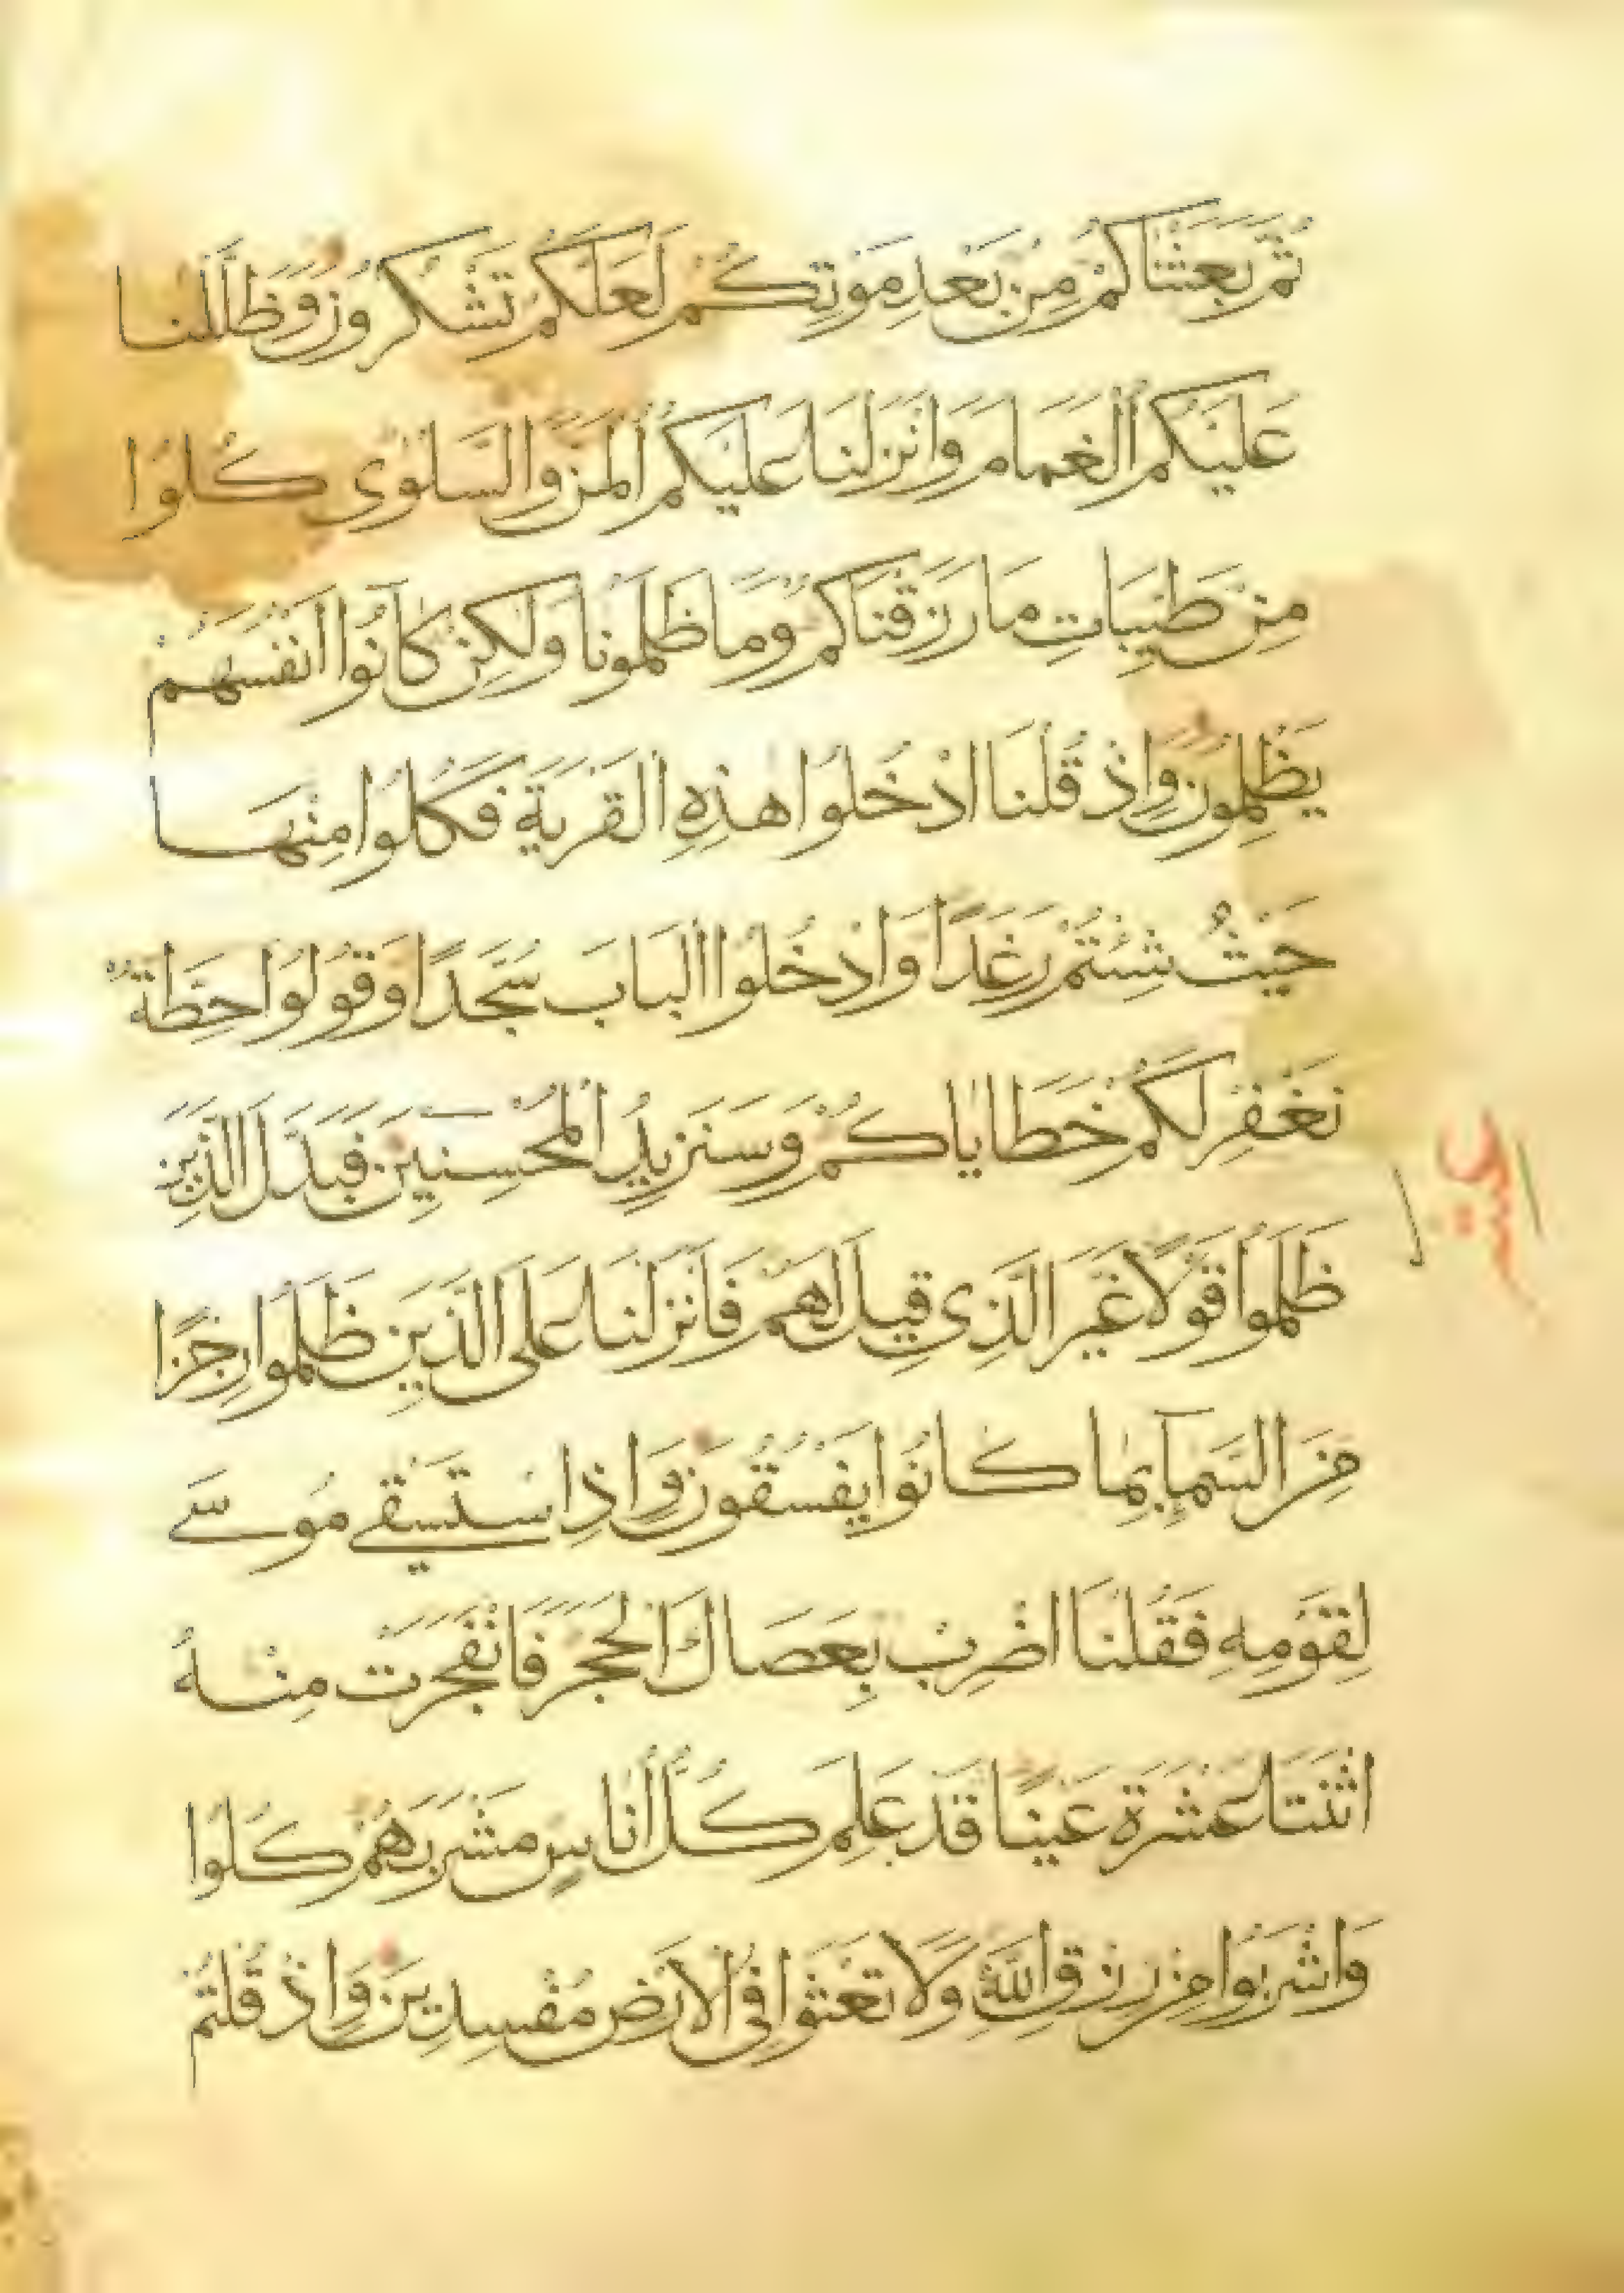 ثُمَّ بَعَثْنَاكُمْ مِنْ بَعْدِ مَوْتِكُمْ لَعَلَّكُمْ تَشْكُرُونَ وَظَلَّلْنَا
عَلَيْكُمُ الْغَمَامَ وَاَنْزَلْنَا عَلَيْكُمُ الْمَنَّ وَالسَّلْوٰى كُلُوْا
مِنْ طَيِّبَاتِ مَا رَزَقْنَاكُمْ وَمَا ظَلَمُونَا وَلٰكِنْ كَانُوا اَنْفُسَهُمْ
يَظْلِمُونَ وَاِذْ قُلْنَا ادْخُلُوا هٰذِهِ الْقَرْيَةَ فَكُلُوا مِنْهَا
حَيْثُ شِئْتُمْ رَغَدًا وَادْخُلُوا الْبَابَ سُجَّدًا وَقُولُوا حِطَّةٌ
نَغْفِرْ لَكُمْ خَطَايَاكُمْ وَسَنَزِيدُ الْمُحْسِنِينَ فَبَدَّلَ الَّذِينَ
ظَلَمُوا قَوْلًا غَيْرَ الَّذِي قِيلَ لَهُمْ فَاَنْزَلْنَا عَلَى الَّذِينَ ظَلَمُوا رِجْزًا
مِنَ السَّمَآءِ بِمَا كَانُوا يَفْسُقُونَ وَاِذِ اسْتَسْقٰى مُوسٰى
لِقَوْمِهِ فَقُلْنَا اضْرِبْ بِعَصَاكَ الْحَجَرَ فَانْفَجَرَتْ مِنْهُ
اثْنَتَا عَشْرَةَ عَيْنًا قَدْ عَلِمَ كُلُّ اُنَاسٍ مَشْرَبَهُمْ كُلُوْا
وَاشْرَبُوا مِنْ رِزْقِ اللّٰهِ وَلَا تَعْثَوْا فِى الْاَرْضِ مُفْسِدِينَ وَاِذْ قُلْتُمْ